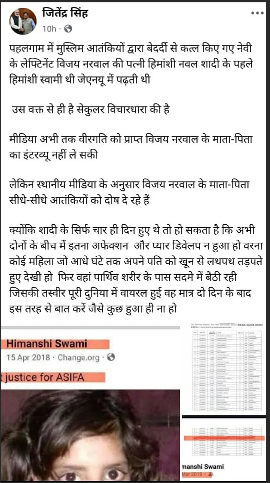 जितेंद्र सिंह
10h
पहलगाम में मुस्लिम आतंकियों द्वारा बेदर्दी से कत्ल किए गए नेवी
के लेफ्टिनेंट विजय नरवाल की पत्नी हिमांशी नवल शादी के पहले
हिमांशी स्वामी थी जेएनयू में पढ़ती थी
उस वक्त से ही है सेकुलर विचारधारा की है
मीडिया अभी तक वीरगति को प्राप्त विजय नरवाल के माता-पिता
का इंटरव्यू नहीं ले सकी
लेकिन स्थानीय मीडिया के अनुसार विजय नरवाल के माता-पिता
सीधे-सीधे आतंकियों को दोष दे रहे हैं
क्योंकि शादी के सिर्फ चार ही दिन हुए थे तो हो सकता है कि अभी
दोनों के बीच में इतना अफेक्शन और प्यार डिवेलप न हुआ हो वरना
कोई महिला जो आधे घंटे तक अपने पति को खून से लथपथ तड़पते
हुए देखी हो फिर वहां पार्थिव शरीर के पास सदमे में बैठी रही
जिसकी तस्वीर पूरी दुनिया में वायरल हुई वह मात्र दो दिन के बाद
इस तरह से बात करें जैसे कुछ हुआ ही ना हो
Himanshi Swami
15 Apr 2018 · Change.org ·
t justice for ASIFA
manshi Swami